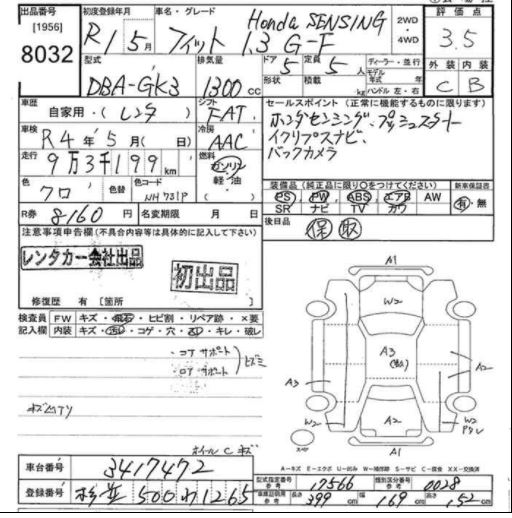 出品番号 初度登録年月 車名・グレード 2WD 評価点
[1956] Honda SENSING ・4WD
8032 R1 5月 フィット 1.3 G-F 3.5
型式 排気量 ドア 定員 ディーラー・並行 外装 内装
5 5人 モデル年式 年
DBA-GK3 1300cc 形状 積載 kg ハンドル 左・右 C B
車歴 シフト セールスポイント(正常に機能するものに限ります)
自家用・(レンタ) FAT ホンダセンシング、プッシュスタート
車検 冷房 イクリプスナビ、
R4年5月(日) AAC バックカメラ
走行 燃料
9万3千199km ガソリン
軽・油
色 色替 色コード 装備品(純正品に限り○をつけてください) 新車保証書
クロ NH731P PS PW ABS エアB AW 有・無
SR ナビ TV カワ
R券 8160円 名変期限 月 日 後日品
注意事項申告欄(不具合内容等は具体的に記入して下さい) 保 取
レンタカー会社出品
初出品
修復歴 有 [箇所
検査員 FW キズ・飛石・ヒビ割・リペア跡・×要
記入欄 内装 キズ・汚レ・コゲ・穴・スレ・キレ・破レ
・コアサポート
・ロアサポート
キズ凹アリ
ホイールCキズ
A1
W2
A3
A2
A3
W2
W2
A2
スペア
A1
A-キズ E-エクボ U-凹み W-補修跡 S-サビ C-腐食 XX-交換済
車台番号 3417472 型式指定番号 参考 17566 類別区分番号 参考 0028
登録番号 杉並 500 わ 1265 長さ 399cm 幅 169cm 高さ 152cm